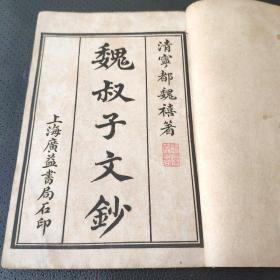 清寧都魏禧著
魏叔子文鈔
上海廣益書局石印